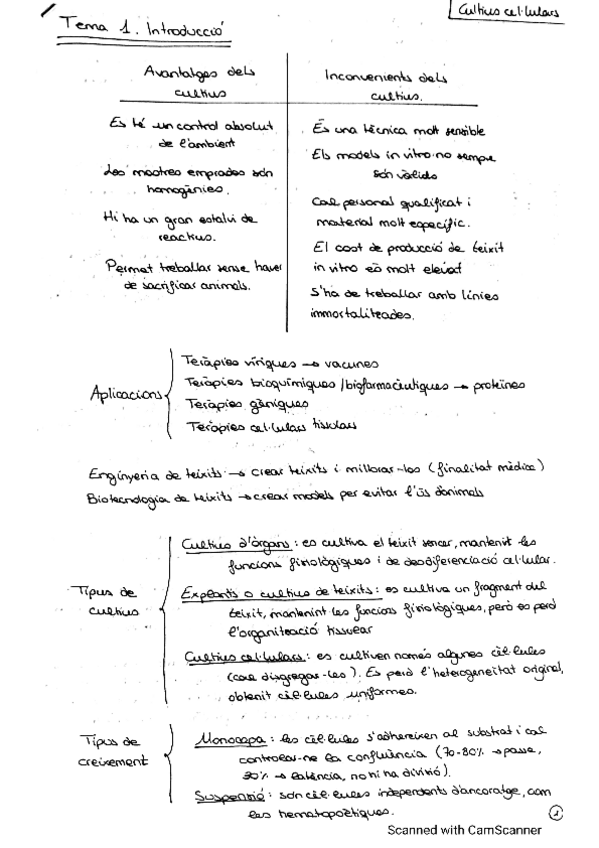 Cultius cel·lulars
Tema 1. Introducció
Avantatges dels
cultius
Es té un control absolut
de l'ambient
Les mostres emprades són
homogènies.
Hi ha un gran estalvi de
reactius.
Permet treballar sense haver
de sacrificar animals.
Inconvenients dels
cultius.
És una tècnica molt sensible
Els models in vitro no sempre
són vàlids
Cal personal qualificat i
material molt específic.
El cost de producció de teixit
in vitro és molt elevat
S'ha de treballar amb línies
immortalitzades.
Aplicacions
Teràpies víriques → vacunes
Teràpies bioquímiques/biofarmacèutiques → proteïnes
Teràpies gèniques
Teràpies cel·lulars tissulars
Enginyeria de teixits → crear teixits i millorar-los (finalitat mèdica)
Biotecnologia de teixits → crear models per evitar l'ús d'animals
Tipus de
cultius
Cultius d'òrgans: es cultiva el teixit sencer, mantenint les
funcions fisiològiques i de desdiferenciació cel·lular.
Explants o cultius de teixits: es cultiva un fragment del
teixit, mantenint les funcions fisiològiques, però es perd
l'organització tissular
Cultius cel·lulars: es cultiven només algunes cèl·lules
(cal disgregar-les). Es perd l'heterogeneïtat original,
obtenint cèl·lules uniformes.
Tipus de
creixement
Monocapa: les cèl·lules s'adhereixen al substrat i cal
controlar-ne la confluència (70-80% → passe,
90% → latència, no hi ha divisió).
Suspensió: són cèl·lules independents d'ancoratge, com
les hematopoètiques.
1
Scanned with CamScanner